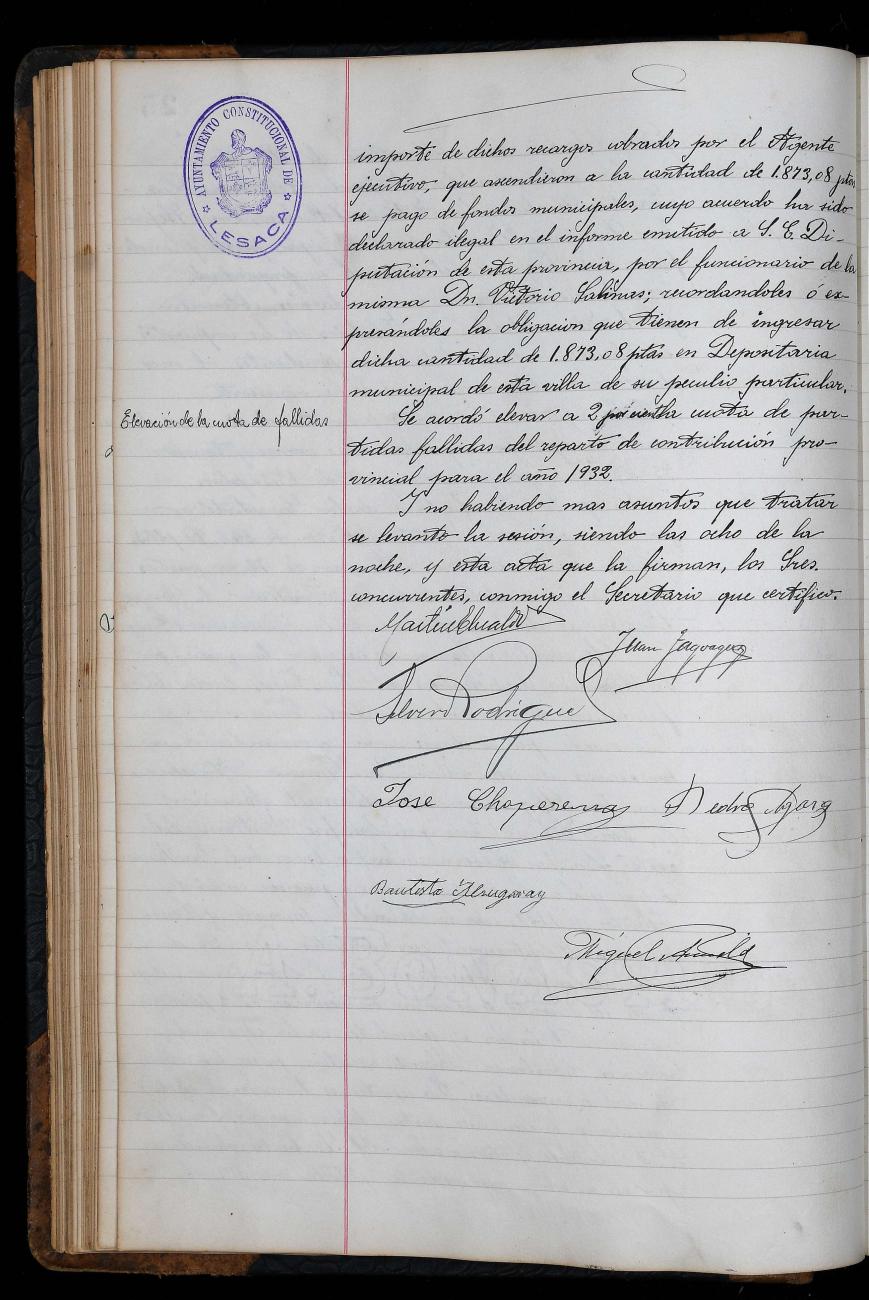 AYUNTAMIENTO CONSTITUCIONAL DE
LESACA
importe de dichos recargos cobrados por el Agente
ejecutivo, que ascendieron a la cantidad de 1.873,08 ptas
se pago de fondos municipales, cuyo acuerdo ha sido
declarado ilegal en el informe emitido a S. E. Di-
putación de esta provincia, por el funcionario de la
misma Dn. Victorio Salinas; recordandoles ó ex-
presándoles la obligacion que tienen de ingresar
dicha cantidad de 1.873,08 ptas en Depositaria
municipal de esta villa de su peculio particular.
Elevación de la cuota de fallidas
Se acordó elevar a 2 por ciento la cuota de par-
tidas fallidas del reparto de contribución pro-
vincial para el año 1932.
Y no habiendo mas asuntos que tratar
se levanto la sesión, siendo las ocho de la
noche, y esta acta que la firman, los Sres.
concurrentes, conmigo el Secretario que certifico.
Martin
Juan
Rodriguez
Jose Choperena Pedro
Bautista
Miguel